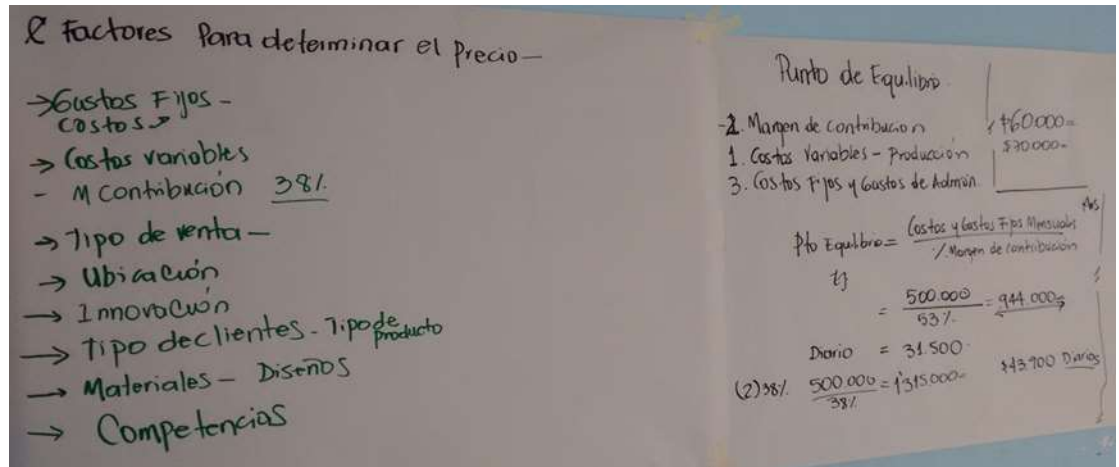 Factores Para determinar el Precio —
→ Gastos Fijos -
costos
→ Costos variables
- M contribución 38%
→ Tipo de venta —
→ Ubicación
→ Innovación
→ Tipo de clientes - Tipo de producto
→ Materiales — Diseños
→ Competencias
Punto de Equilibrio
2. Margen de contribucion
1. Costos Variables - Producción
3. Costos Fijos y Gastos de Admón
$60.000=
$30.000=
Pto Equilibro = Costos y Gastos Fijos Mensuales
% Margen de contribución
= 500.000 = 944.000=
53%
Diario = 31.500
(2) 38% 500.000 = 1'315.000=
38%
$43.900 Diarios